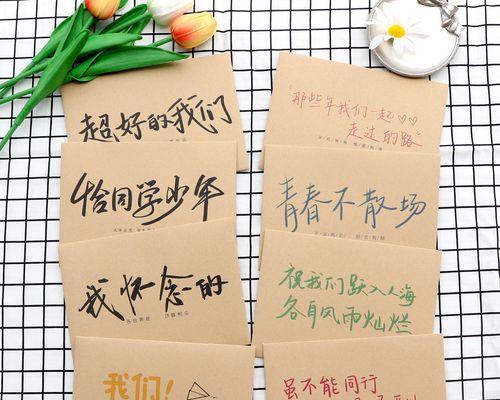 超好的我们
恰同学少年
我怀念的
我们!
“那些年我们一起♡♡
走过的路”
青春不散场
祝我们跃入人海
各自风雨灿烂
虽不能同行